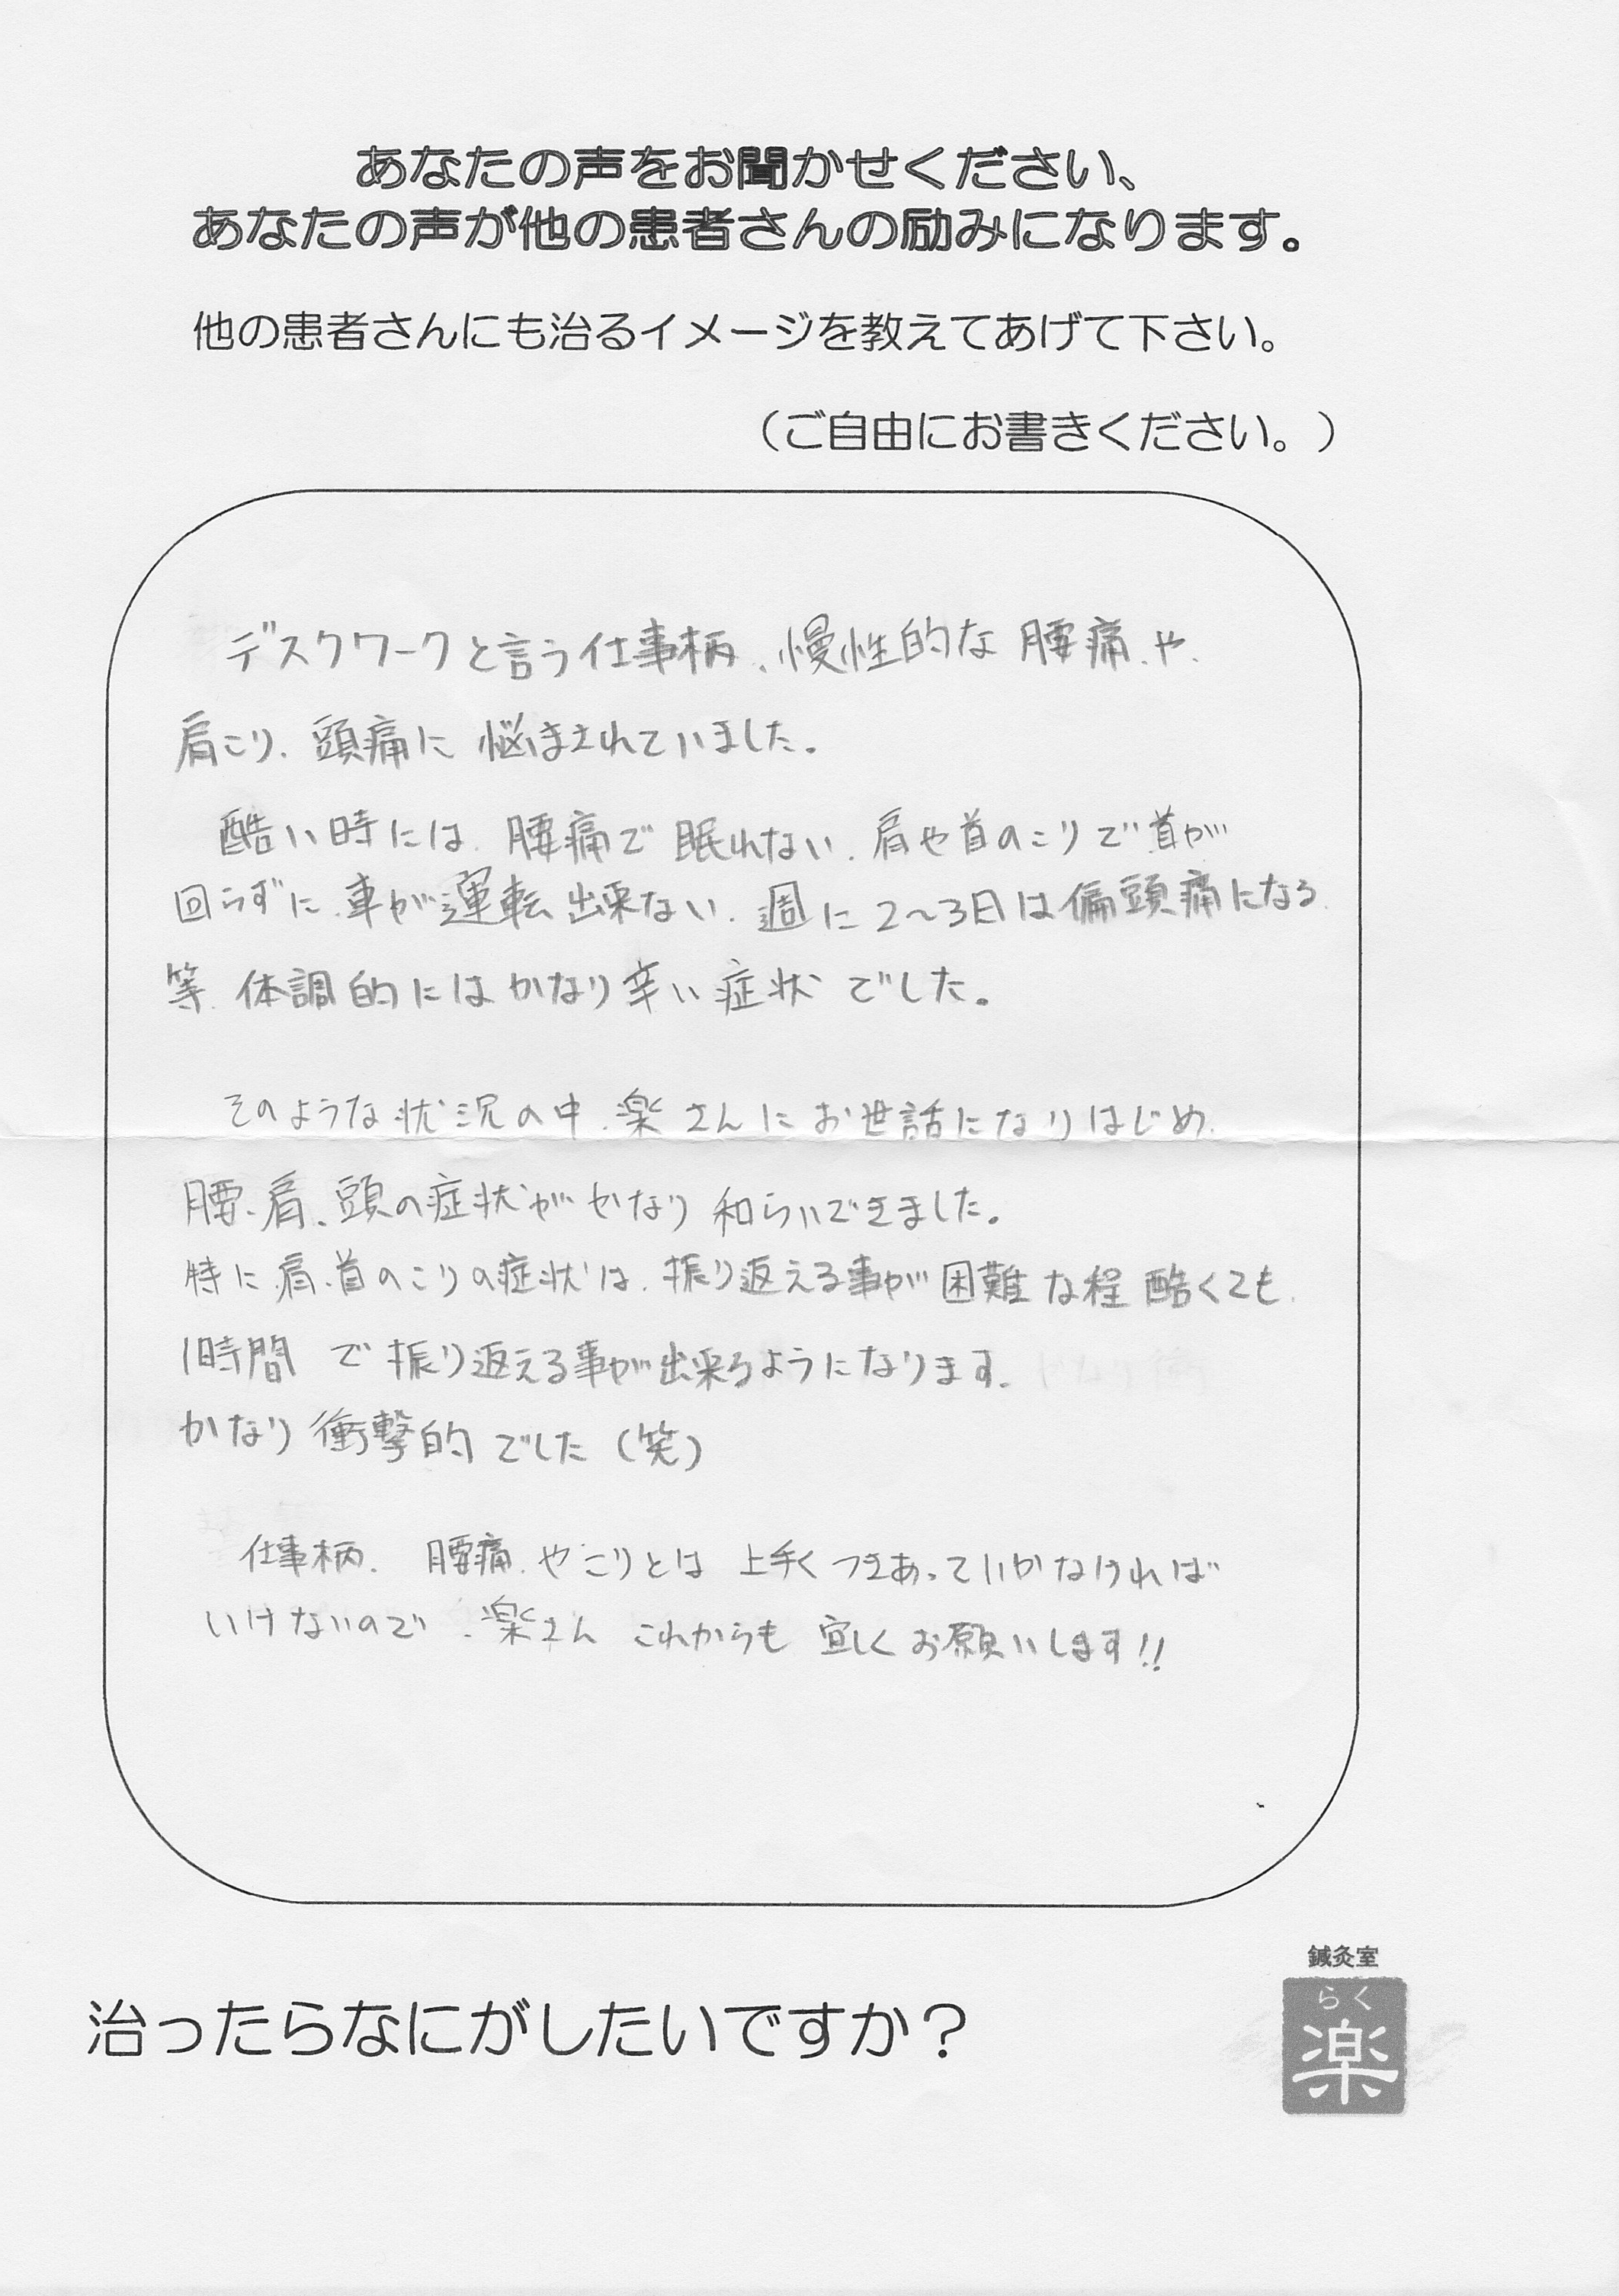 あなたの声をお聞かせください、
あなたの声が他の患者さんの励みになります。
他の患者さんにも治るイメージを教えてあげて下さい。
（ご自由にお書きください。）
デスクワークと言う仕事柄、慢性的な腰痛、や、
肩こり、頭痛に悩まされていました。
酷い時には、腰痛で眠れない、肩や首のこりで首が
回らずに、車が運転出来ない、週に2～3日は偏頭痛になる、
等、体調的にはかなり辛い症状でした。
そのような状況の中、楽さんにお世話になりはじめ、
腰、肩、頭の症状がかなり和らいできました。
特に、肩、首のこりの症状は、振り返える事が困難な程酷くても、
1時間で振り返える事が出来るようになります。
かなり衝撃的でした（笑）
仕事柄、腰痛、やこりとは上手くつきあっていかなければ
いけないので、楽さんこれからも宜しくお願いします!!
鍼灸室
らく
楽
治ったらなにがしたいですか？